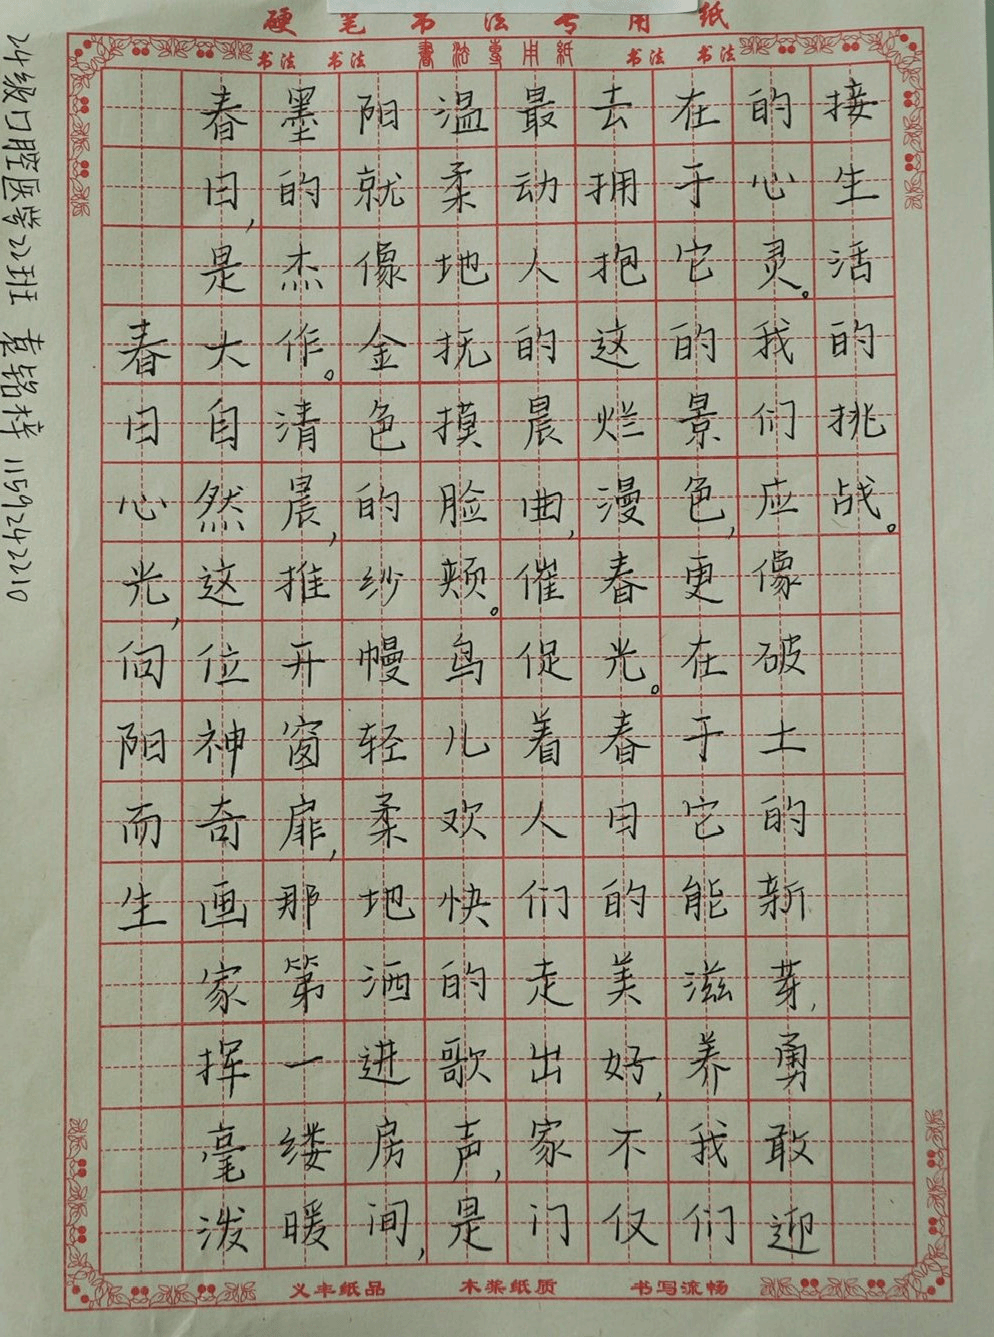 硬笔书法专用纸
书法 书法 書法專用紙 书法 书法
24级口腔医学2班 袁铭梓 1159242210
春日心光,向阳而生
春日,是大自然这位神奇画家挥毫泼
墨的杰作。清晨,推开窗扉,那第一缕暖
阳就像金色的纱幔轻柔地洒进房间,
温柔地抚摸脸颊。鸟儿欢快的歌声,是
最动人的晨曲,催促着人们走出家门
去拥抱这烂漫春光。春日的美好,不仅
在于它的景色,更在于它能滋养我们
的心灵。我们应像破土的新芽,勇敢迎
接生活的挑战。
义丰纸品 木浆纸质 书写流畅